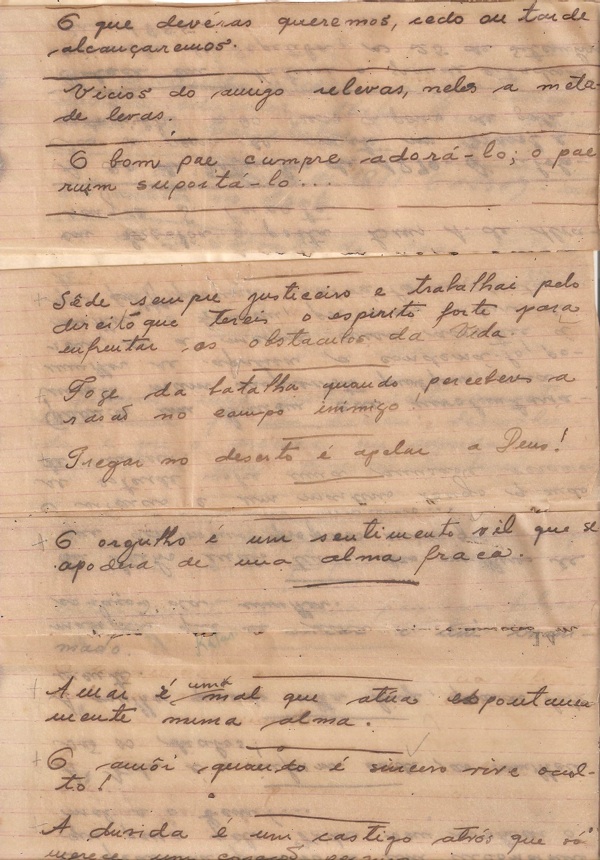 O que devéras queremos, cedo ou tarde
alcançaremos.
Vicios do amigo relevas, neles a meta-
de levas.
O bom pae cumpre adorá-lo; o pae
ruim suportá-lo...
Sêde sempre justiceiro e trabalhai pelo
direito que tereis o espirito forte para
enfrentar os obstaculos da Vida.
Foge da batalha quando perceberes a
rasão no campo inimigo!
Pregar no deserto é apelar a Deus!
O orgulho é um sentimento vil que se
apodera de uma alma fraca.
Amar é uma mal que atúa espontanea
mente numa alma.
O amôr quando é sincero vive ocul-
to!
A duvida é um castigo atrós que só
merece um coração